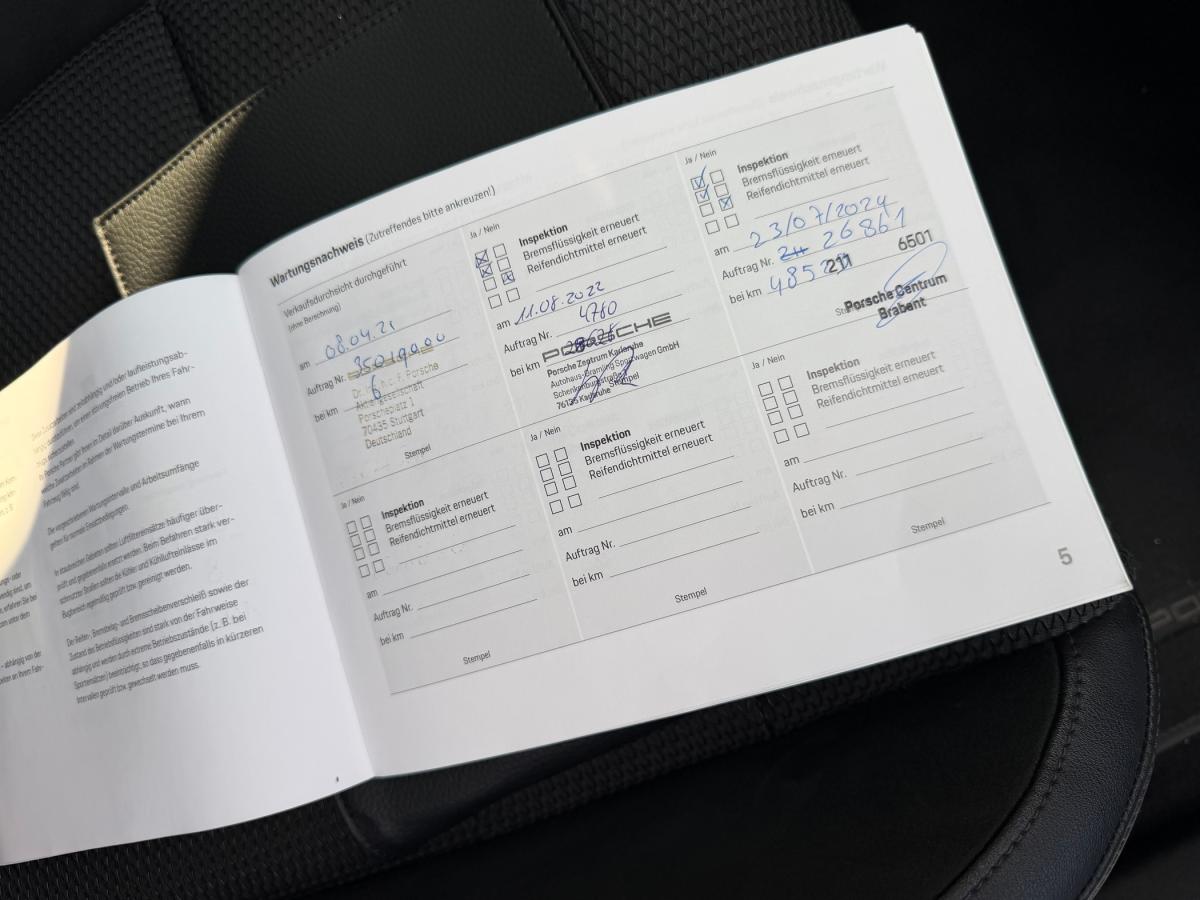 Wartungsnachweis (Zutreffendes bitte ankreuzen!)
Verkaufsdurchsicht durchgeführt
(ohne Berechnung)
am 08.04.21
Auftrag Nr. 35019900
bei km 6
Dr. Ing. h.c. F. Porsche
Aktiengesellschaft
Porscheplatz 1
70435 Stuttgart
Deutschland
Stempel
Ja / Nein
Inspektion
Bremsflüssigkeit erneuert
Reifendichtmittel erneuert
am 11.08.2022
Auftrag Nr. 4780
bei km
PORSCHE
Porsche Zentrum Karlsruhe
Autohaus Bramling Sportwagen GmbH
76135 Karlsruhe
Stempel
Ja / Nein
Inspektion
Bremsflüssigkeit erneuert
Reifendichtmittel erneuert
am 23/07/2024
Auftrag Nr. 26861
bei km 485
211
6501
Porsche Centrum
Brabant
Ja / Nein
Inspektion
Bremsflüssigkeit erneuert
Reifendichtmittel erneuert
am
Auftrag Nr.
bei km
Stempel
Ja / Nein
Inspektion
Bremsflüssigkeit erneuert
Reifendichtmittel erneuert
am
Auftrag Nr.
bei km
Stempel
Ja / Nein
Inspektion
Bremsflüssigkeit erneuert
Reifendichtmittel erneuert
am
Auftrag Nr.
bei km
Stempel
5
Die vorgeschriebenen Wartungsintervalle und Arbeitsumfänge
gelten für normale Einsatzbedingungen.
In staubreichen Gebieten sollten Luftfiltereinsätze häufiger über-
prüft und gegebenenfalls ersetzt werden. Beim Befahren stark ver-
schmutzter Straßen sollten die Kühler und Kühllufteinlässe im
Bugbereich regelmäßig geprüft bzw. gereinigt werden.
Der Reifen-, Bremsbelag- und Bremsscheibenverschleiß sowie der
Zustand der Betriebsflüssigkeiten sind stark von der Fahrweise
abhängig und werden durch extreme Betriebszustände (z. B. bei
Sporteinsätzen) beeinträchtigt, so dass gegebenenfalls in kürzeren
Intervallen geprüft bzw. gewechselt werden muss.